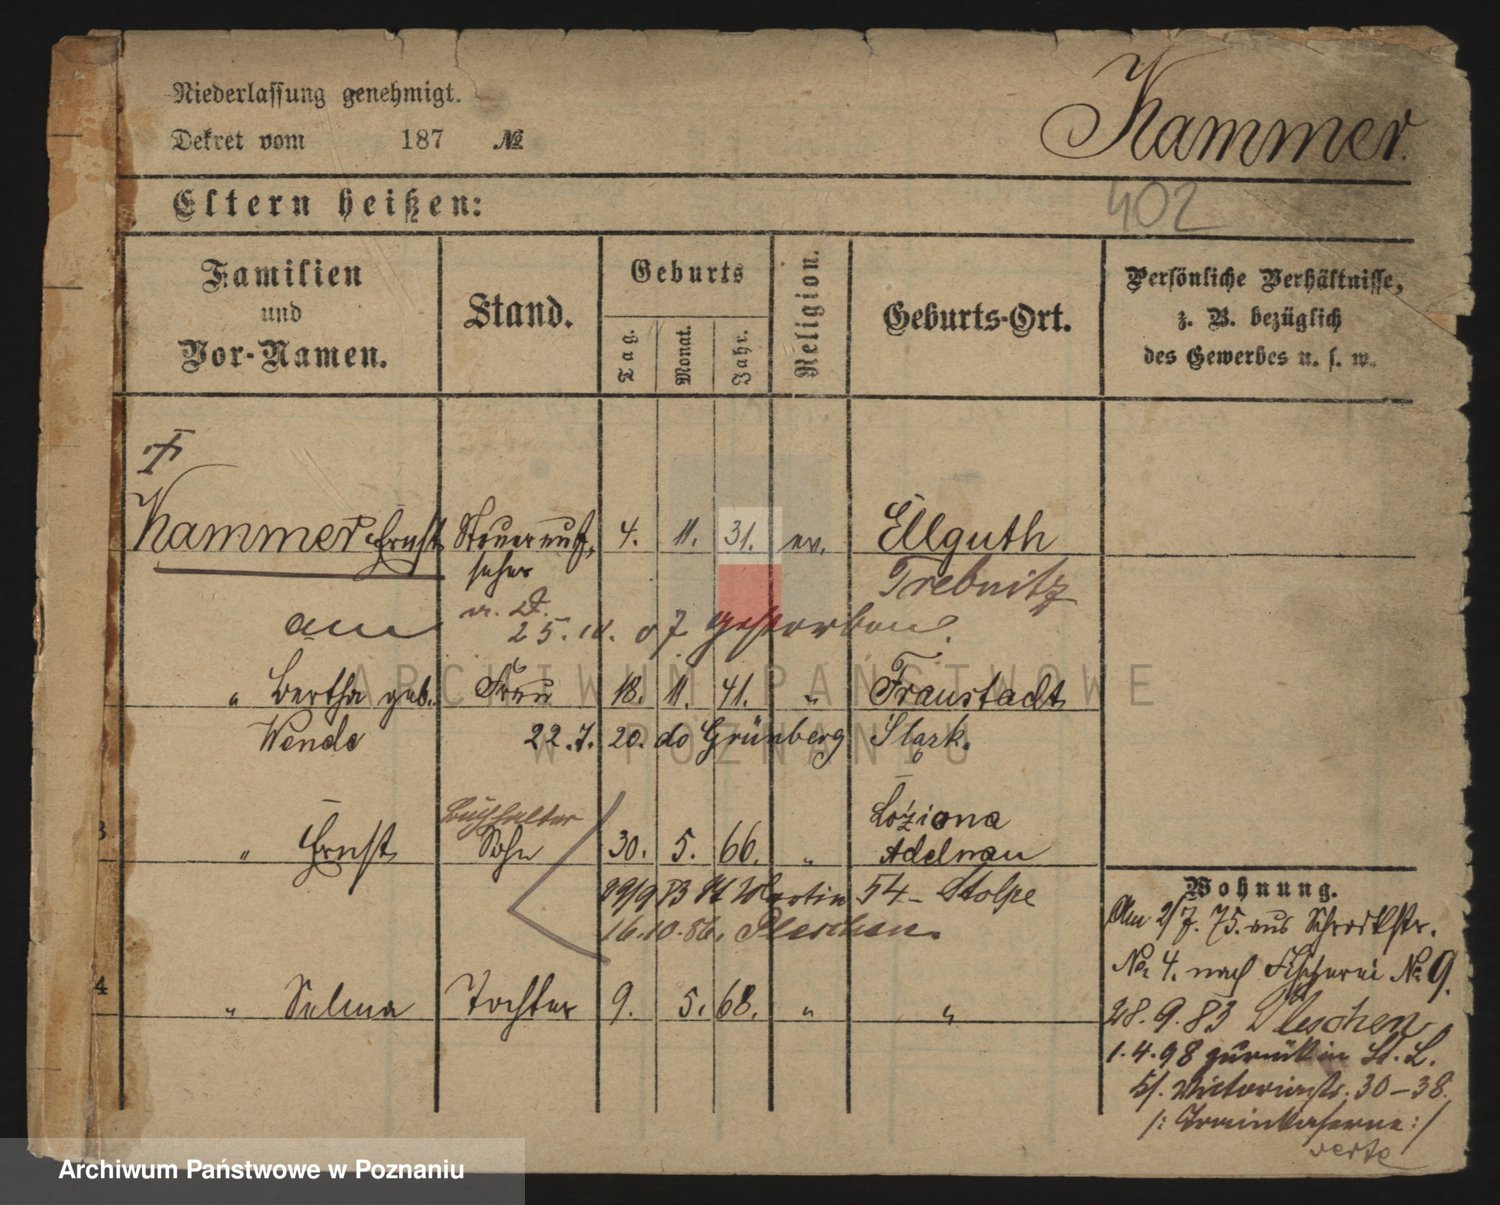 Niederlassung genehmigt.
Dekret vom 187 №
Kammer.
402
Eltern heißen:
Familien und Vor-Namen.
Stand.
Geburts
Tag.
Monat.
Jahr.
Religion.
Geburts-Ort.
Persönliche Verhältnisse,
z. B. bezüglich
des Gewerbes u. s. w.
Kammer Ernst Steuerauf- 4. 11. 31. ev. Ellguth
seher Trebnitz
a. D.
am 25. 07 gestorben.
" Bertha geb. Frau 18. 11. 41. " Fraustadt
Wende 22.7.20. do Grünberg
3
Buchhalter Łoziona
" Ernst Sohn 30. 5. 66. " Adelnau
29/9 83 St Martin 54 - Stolpe
16.10.86. Pleschen.
4
" Selma Tochter 9. 5. 68. " "
Wohnung.
Am 2/7. 75. aus Schrodkstr.
No. 4. nach Fischerei No. 9.
28. 9. 83 Pleschen
1. 4. 98 zurück in St. L.
Victoriastr. 30-38.
/: Trainkaserne :/
verte
ARCHIWUM PAŃSTWOWE
W POZNANIU
Archiwum Państwowe w Poznaniu